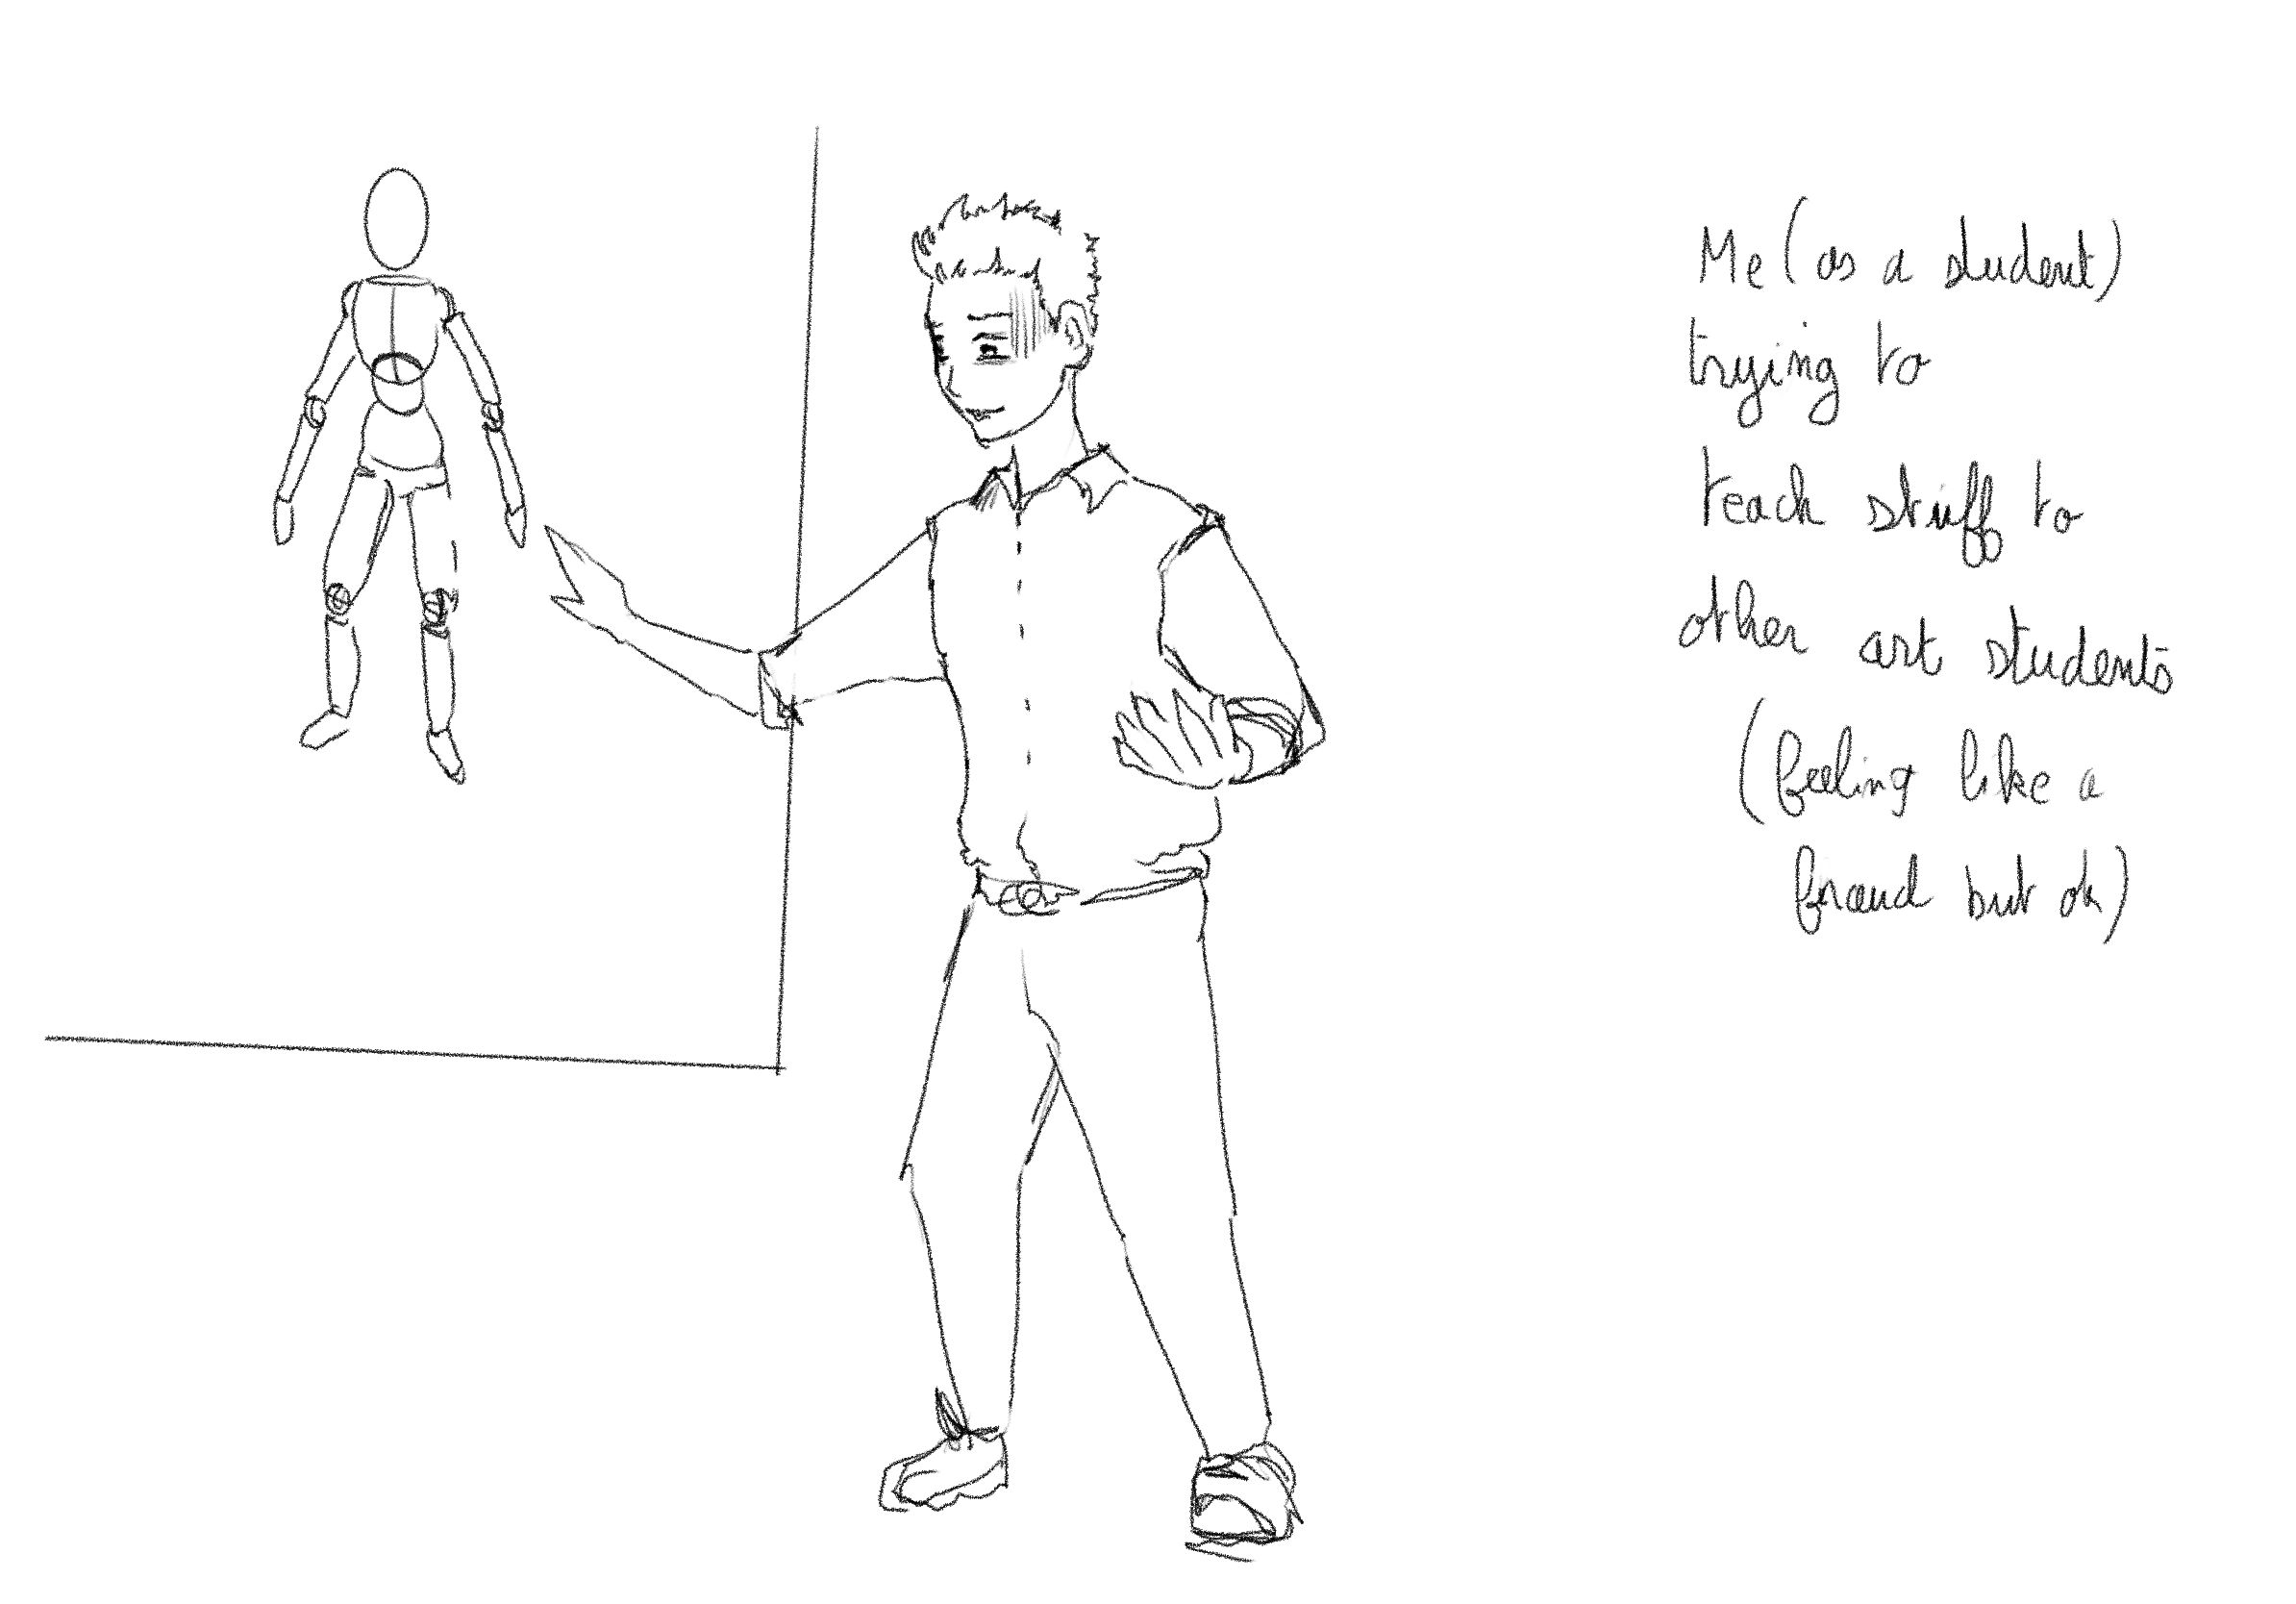 Me (as a student)
trying to
teach stuff to
other art students
(feeling like a
fraud but ok)